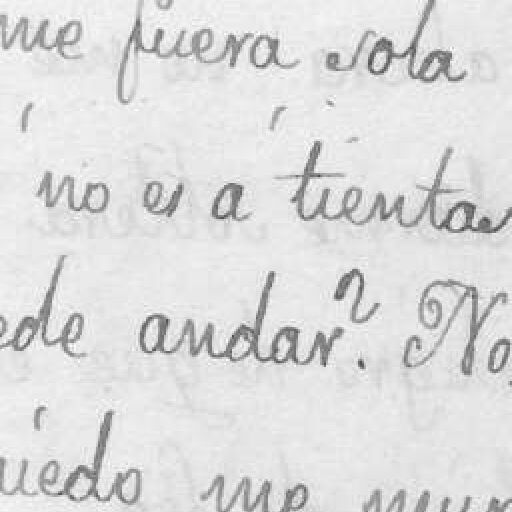 me fuera sola
no es á tientas
ede andar? No,
uiedo me mur